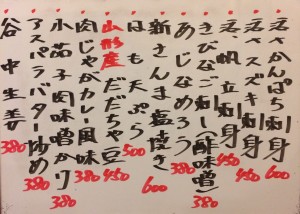 活〆かんぱち刺身 600
活〆スズキ刺身 450
活帆立刺身 450
きびなご刺(酢味噌) 380
あじなめろう 380
新さんま塩焼き 600
はも天ぷら 500
山形産だだちゃ豆 450
肉じゃがカレー風味 380
小茄子肉味噌かけ 380
アスパラバター炒め 380
谷中生姜 380